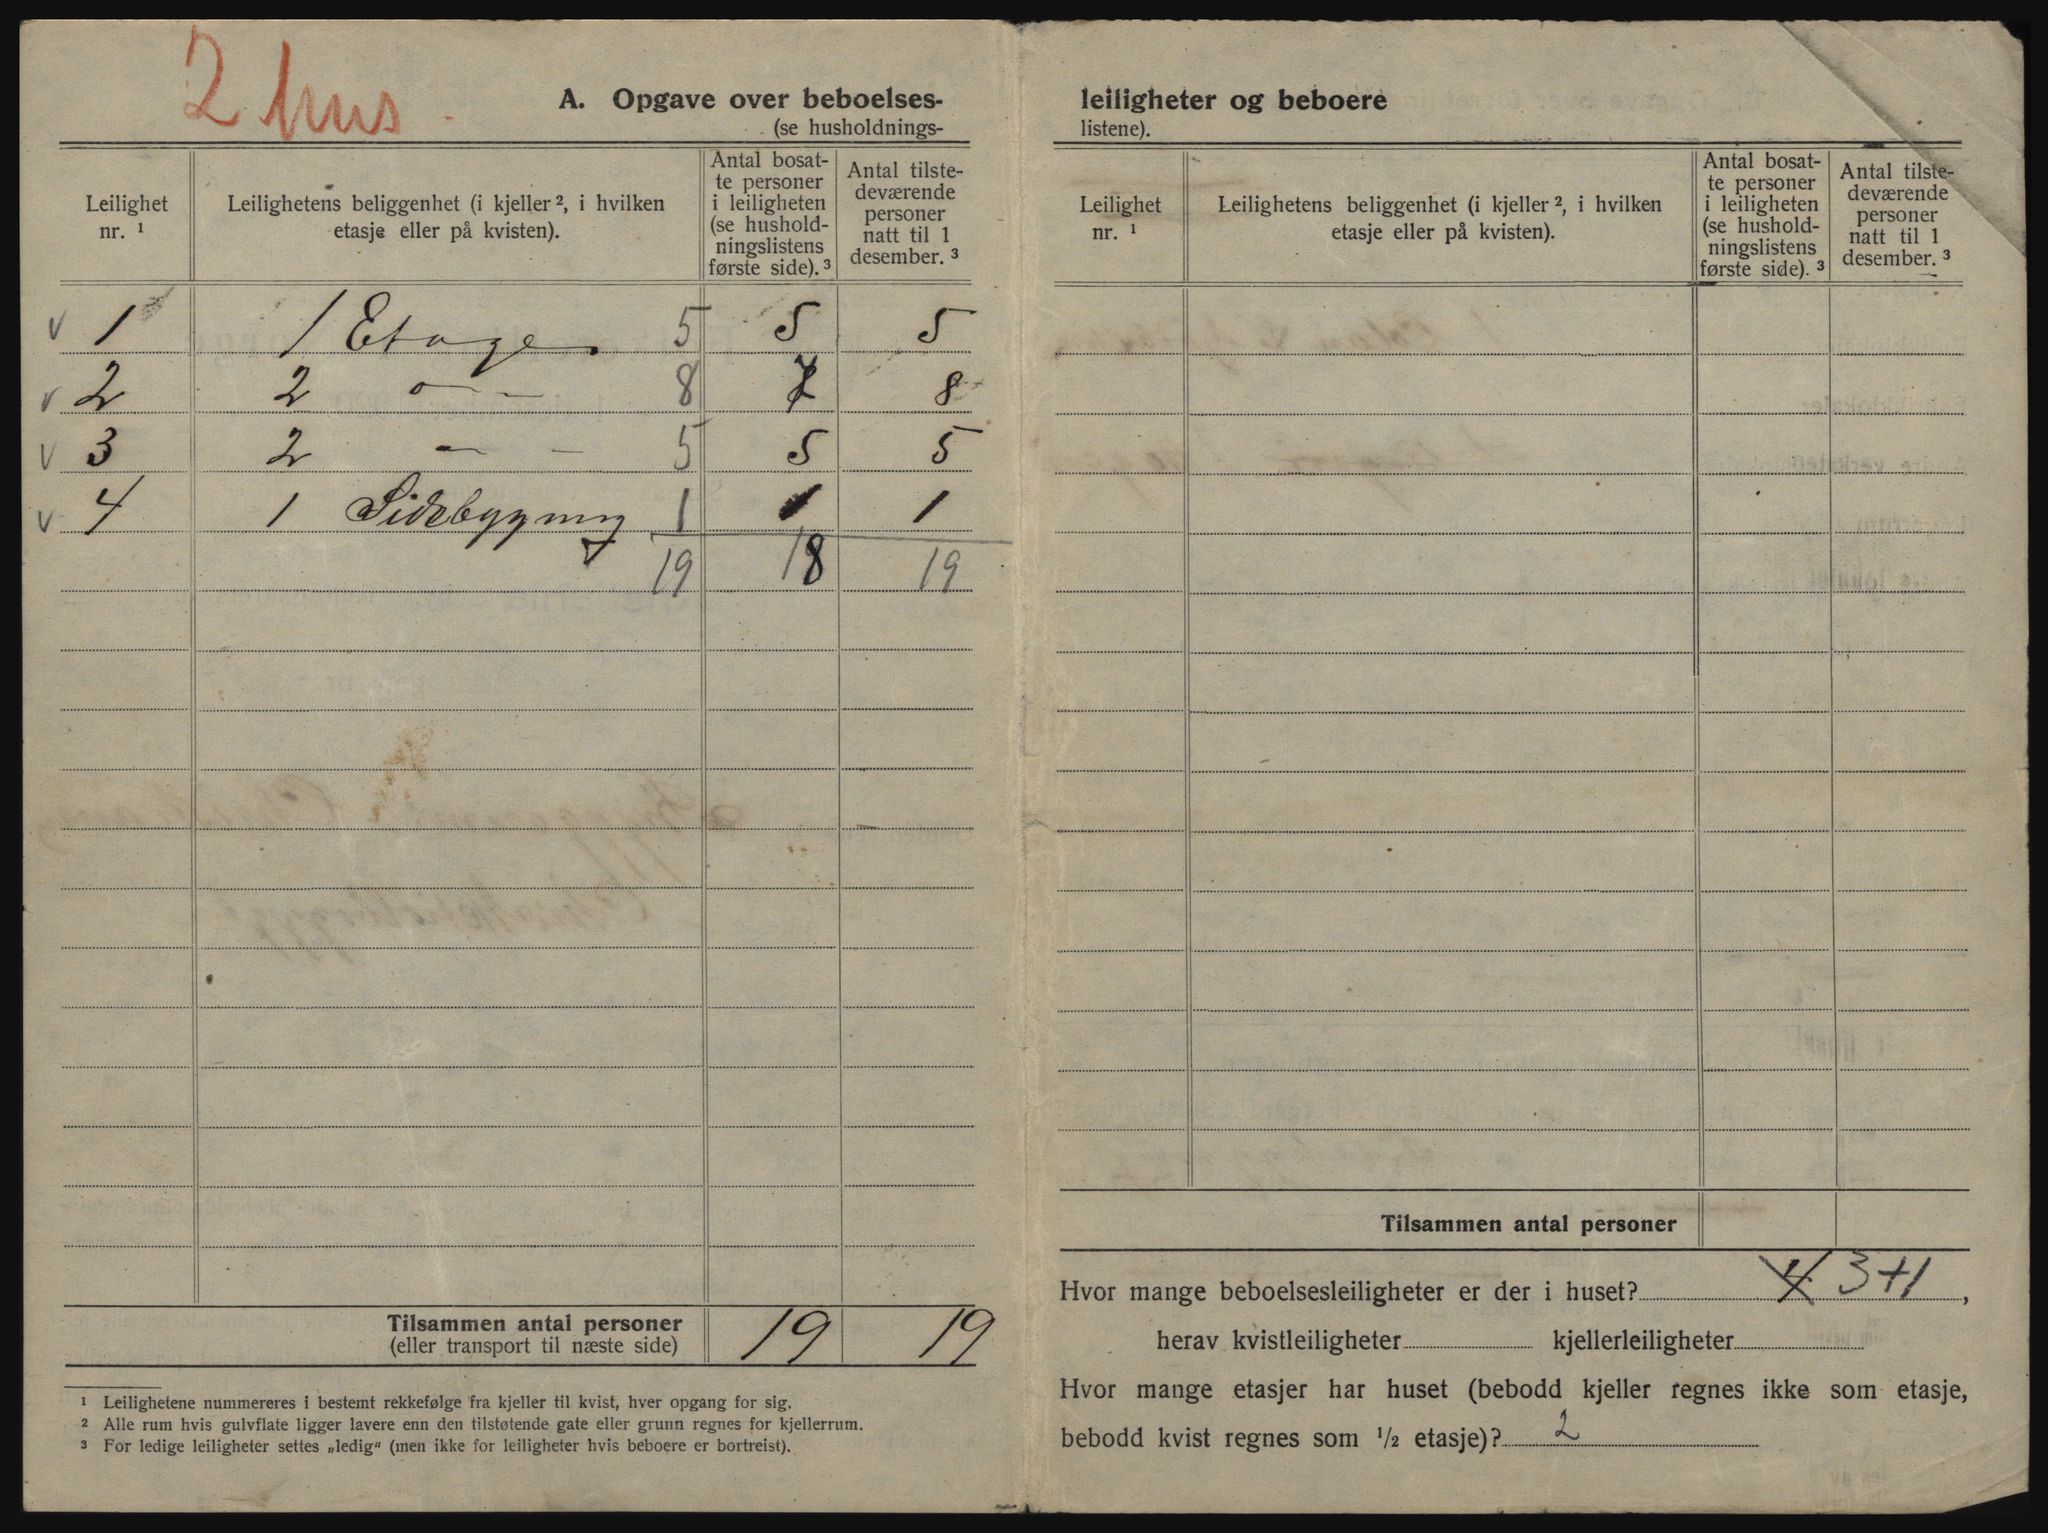 2 hus
A. Opgave over beboelses-
(se husholdnings-
Leilighet nr. ¹
Leilighetens beliggenhet (i kjeller ², i hvilken etasje eller på kvisten).
Antal bosat-
te personer
i leiligheten
(se hushold-
ningslistens
første side). ³
Antal tilste-
deværende
personer
natt til 1
desember. ³
v 1 1 Etage 5 5 5
v 2 2 — 8 7 8
v 3 2 — - 5 5 5
v 4 1 Sidebygning 1 1 1
19 18 19
Tilsammen antal personer 19 19
(eller transport til næste side)
¹ Leilighetene nummereres i bestemt rekkefølge fra kjeller til kvist, hver opgang for sig.
² Alle rum hvis gulvflate ligger lavere enn den tilstøtende gate eller grunn regnes for kjellerrum.
³ For ledige leiligheter settes „ledig“ (men ikke for leiligheter hvis beboere er bortreist).
leiligheter og beboere
listene).
Leilighet nr. ¹
Leilighetens beliggenhet (i kjeller ², i hvilken etasje eller på kvisten).
Antal bosat-
te personer
i leiligheten
(se hushold-
ningslistens
første side). ³
Antal tilste-
deværende
personer
natt til 1
desember. ³
Tilsammen antal personer
Hvor mange beboelsesleiligheter er der i huset? 4 3+1,
herav kvistleiligheter kjellerleiligheter
Hvor mange etasjer har huset (bebodd kjeller regnes ikke som etasje,
bebodd kvist regnes som ½ etasje)? 2